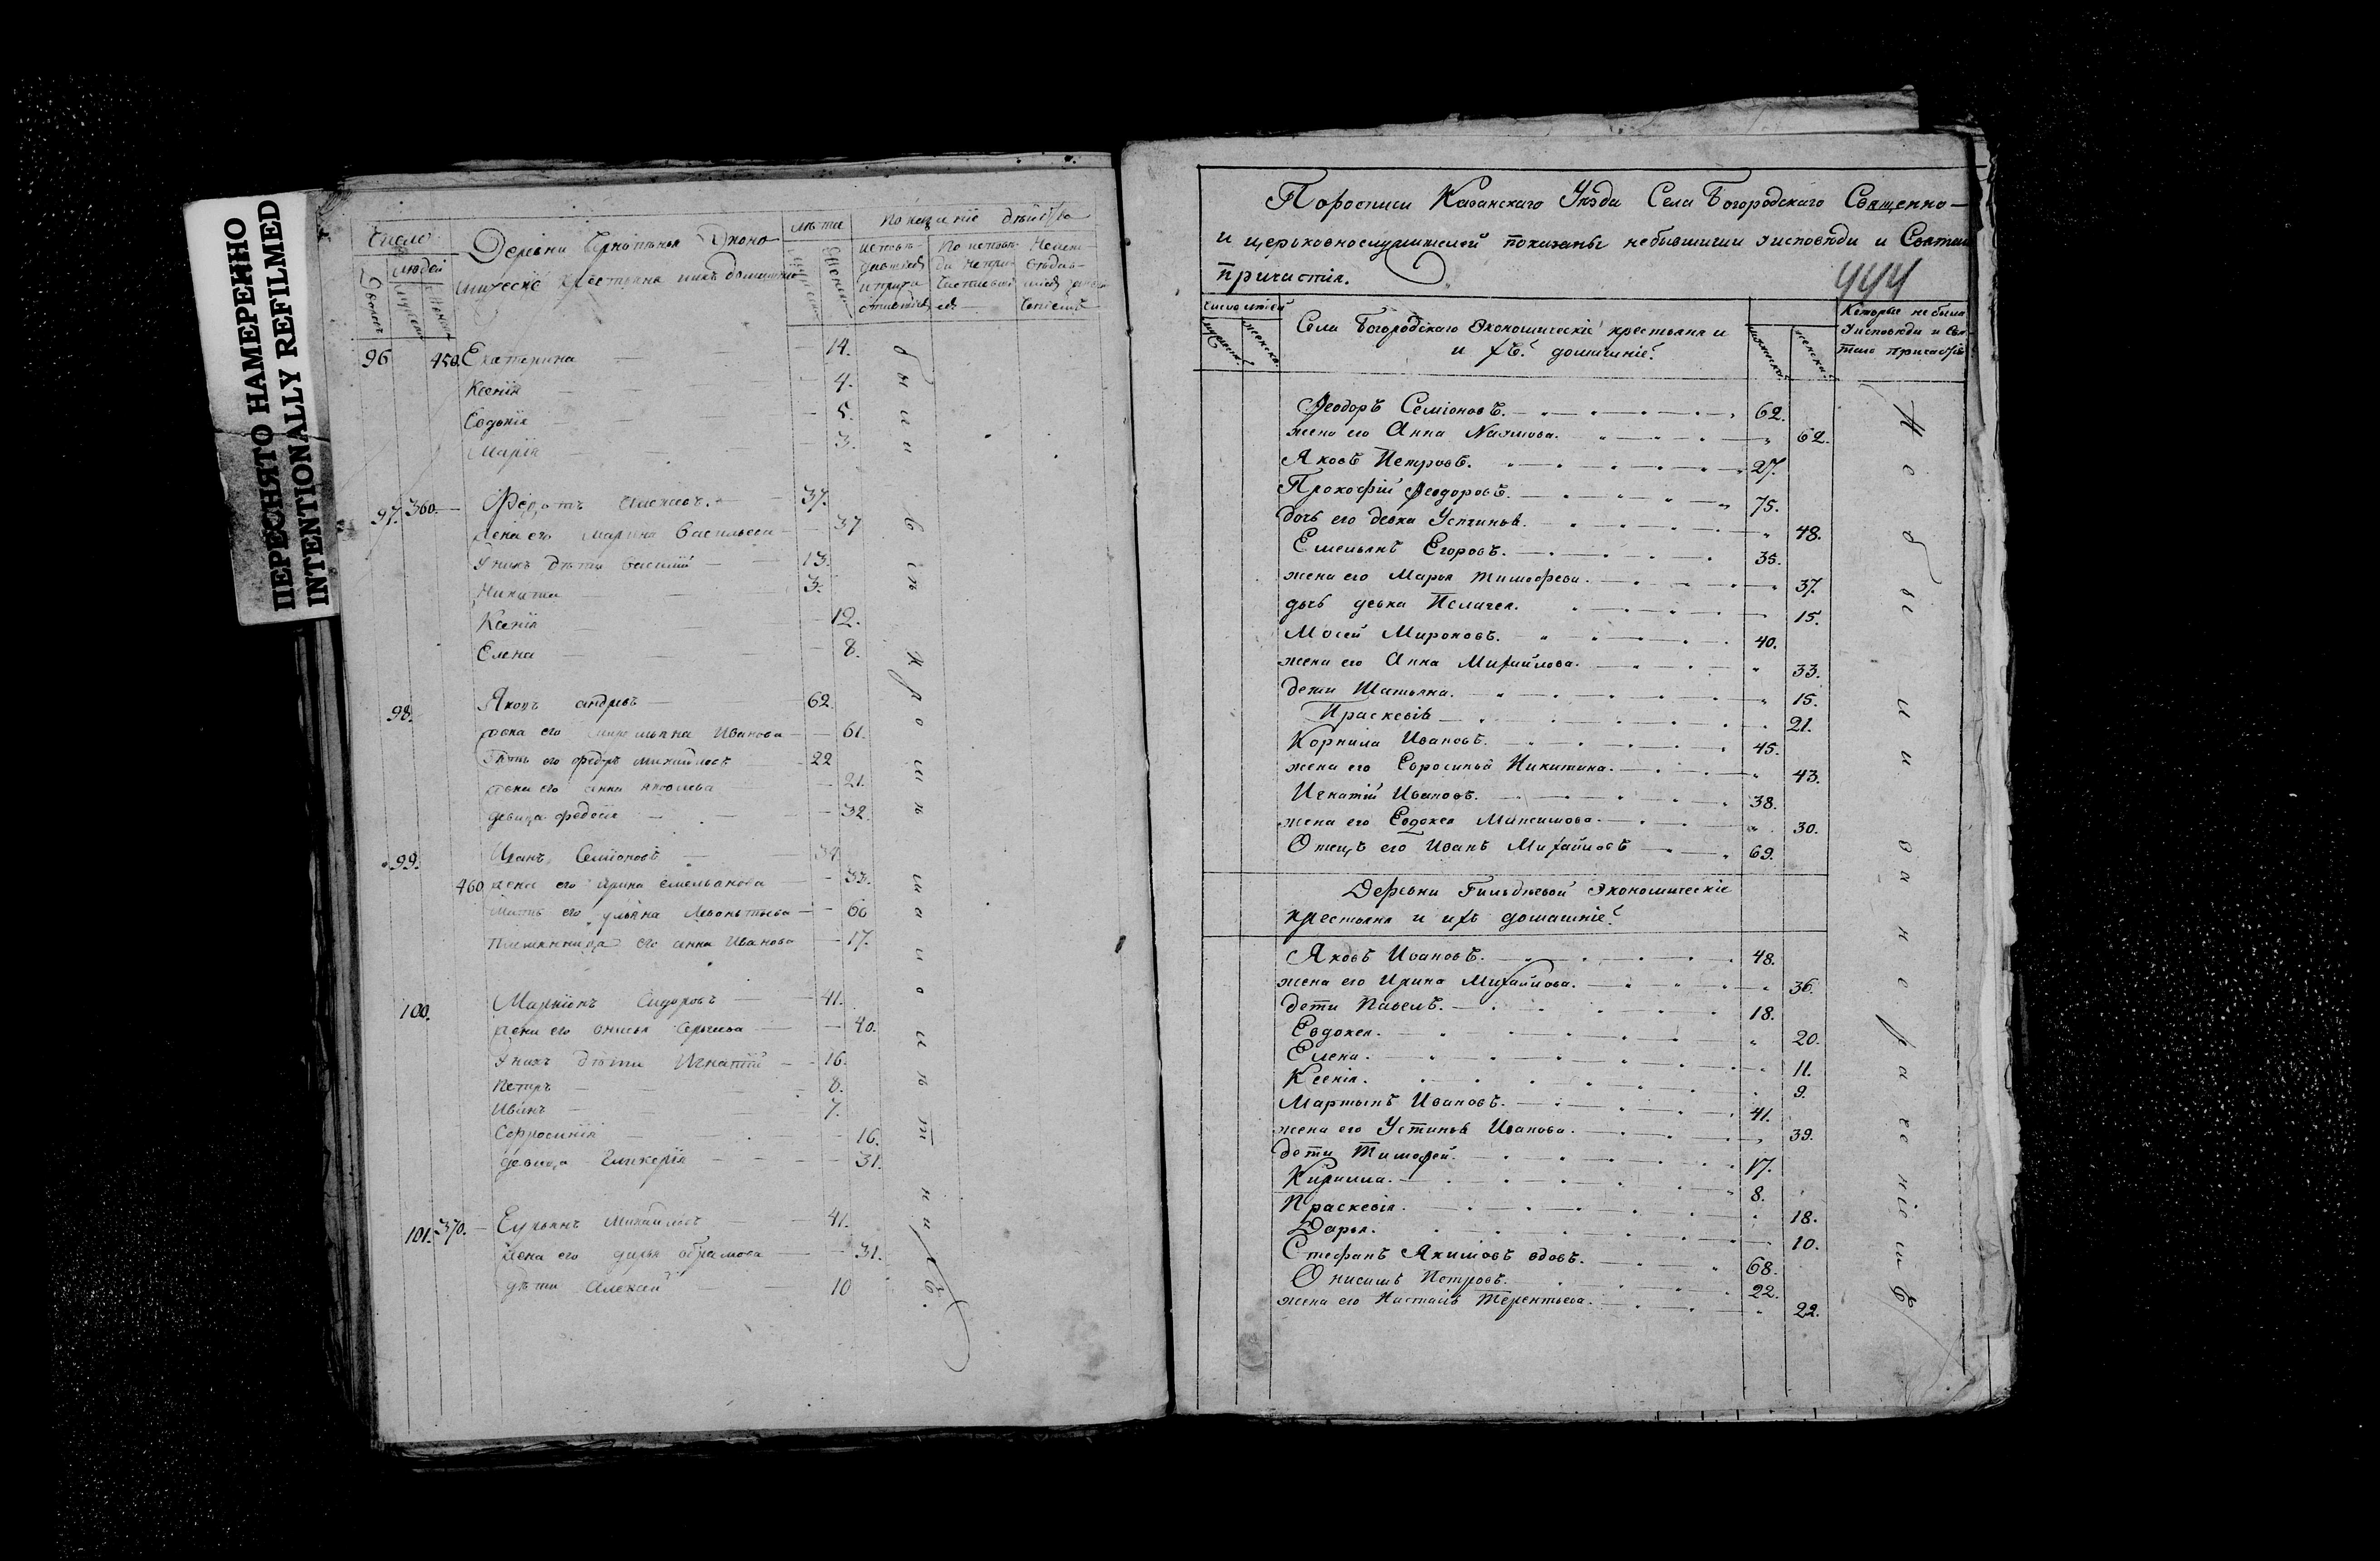 ПЕРЕСНЯТО НАМЕРЕННО
INTENTIONALLY REFILMED
число
людей
Деревни Эконо
мическіе крестьяне и ихъ домашніе
лѣта
Показаніе дѣйства
96 450. Екатерина — 14.
Ксенія — 4.
Евдокія — 5.
Марія — 3.
97. 360. Федотъ — 37.
жена его Марина Васильева — 37
У нихъ дѣти Василій — 13.
Никита — 3.
Ксенія — 12.
Елена — 8.
98. Яковъ Андревъ — 62.
жена его Иванова — 61.
Зять его Федоръ Михайловъ — 22
жена его Анна Яковлева — 21.
девица Федосія — 32.
99. Иванъ Семіоновъ — 34
460 жена его Ирина Емельянова — 33.
Мать его Ульяна Леонтьева — 66
Племянница его Анна Иванова — 17.
100. Маркіонъ Сидоровъ — 41.
жена его Анисья Сергѣева — 40.
У нихъ дѣти Игнатій — 16.
Петръ — 8.
Иванъ — 7.
Ефросинія — 16.
девица Гликерія — 31.
101. 370. Михайловъ — 41.
жена его Дарья Абрамова — 31.
дѣти Алексей — 10
были всѣ кромѣ малолѣтнихъ.
По росписи Казанскаго Уѣзда Села Богородскаго Священно-
и церьковнослужителей показаны небывшими у исповѣди и Святаго
причастія.
444
число людей
мужеска женска
Села Богородскаго Экономическіе крестьяне и
ихъ домашніе.
мужеска женска
Которые не были
у исповѣди и Свя-
таго причастія
Ѳеодоръ Семіоновъ. 62.
жена его Анна Наумова. 62.
Яковъ Петровъ. 27.
Прокофій Ѳеодоровъ. 75.
дочь его девка Устинья. 48.
Емельянъ Егоровъ. 35.
жена его Марья Тимофеева. 37.
дочь девка Пелагея. 15.
Мосей Мироновъ. 40.
жена его Анна Михайлова. 33.
дети Татьяна. 15.
Праскевія 21.
Корнила Ивановъ. 45.
жена его Евросинья Никитина. 43.
Игнатій Ивановъ. 38.
жена его Евдокея Максимова. 30.
Отецъ его Иванъ Михайловъ 69.
Деревни Гильдеевой Экономическіе
крестьяне и ихъ домашніе.
Яковъ Ивановъ. 48.
жена его Ирина Михайлова. 36.
дети Павелъ. 18.
Евдокея. 20.
Елена. 11.
Ксенія. 9.
Мартынъ Ивановъ. 41.
жена его Устинья Иванова. 39.
дети Тимофей. 17.
Кирилла. 8.
Праскевія. 18.
Дарья. 10.
Стефанъ Якимовъ вдовъ. 68.
Онисимъ Петровъ. 22.
жена его Настасья Терентьева. 22.
Не были за нераченіемъ